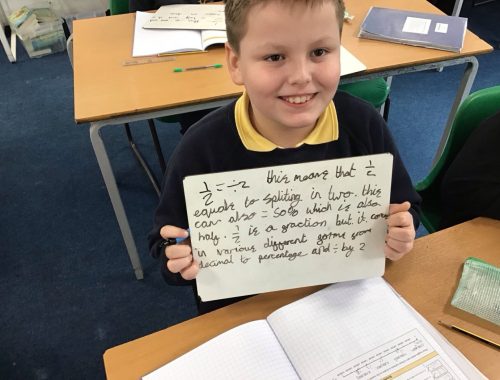 1/2 = ÷2 this means that 1/2
equale to spliting in two. this
can also = 50% which is also
half. 1/2 is a fraction but it comes
in various different forms from
decimal to percentage and ÷ by 2